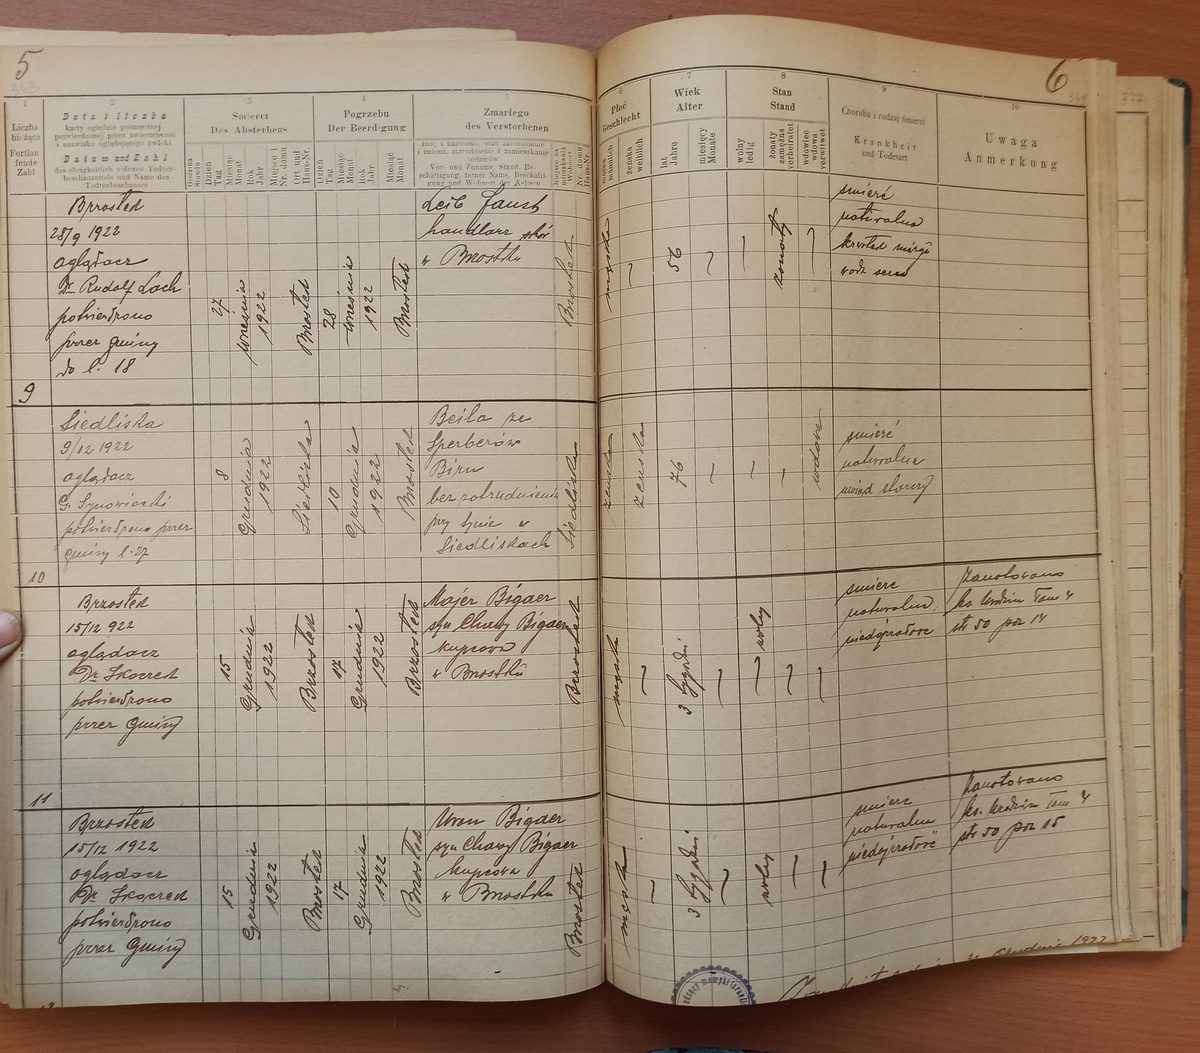 5
6
1
2
3
4
5
6
7
8
9
10
Liczba
bieżąca
Fortlau
fende
Zahl
Data i liczba
karty oględzin pośmiertnej
potwierdzonej przez zwierzchność
i nazwisko oglądającego zwłoki
Datum und Zahl
des obrigkeitlich vidirten Todten-
beschauzettels und Name des
Todtenbeschauers
Śmierci
Des Absterbens
Dzień
Tag
Miesiąc
Monat
Rok
Jahr
Miejsce i
Nr. domu
Ort und
Haus-Nr.
Pogrzebu
Der Beerdigung
Dzień
Tag
Miesiąc
Monat
Rok
Jahr
Zmarłego
des Verstorbenen
i imiona, zatrudnienie i zamieszkanie
rodziców
Vor- und Zuname, Stand, Be-
schäftigung, ferner Name, Beschäfti-
gung und Wohnort der Aeltern
Nr. domu
Haus-Nr.
Płeć
Geschlecht
męska
männlich
żeńska
weiblich
Wiek
Alter
lat
Jahre
miesięcy
Monate
Stan
Stand
wolny
ledig
żonaty
zamężna
verheiratet
wdowiec
wdowa
verwitwet
Choroba i rodzaj śmierci
Krankheit
und Todesart
Uwaga
Anmerkung
Brzostek
28/9 1922
oglądacz
Dr. Rudolf Loch
potwierdzono
przez gminy
do l. 18
27
września
1922
Brzostek
28
września
1922
Brzostek
Leib Faust
handlarz skór
w Brzostku
Brzostek
męska
56
żonaty
śmierć
naturalna
wodz serca
9
Siedliska
9/12 1922
oglądacz
potwierdzono przez
gminy l. 27
8
Grudnia
1922
Siedliska
10
Grudnia
1922
Brzostek
Beila ze
Sperberów
bez zatrudnienia
przy synie w
Siedliskach
Siedliska
żeńska
76
wdowa
śmierć
naturalna
uwiąd starczy
10
Brzostek
15/12 922
oglądacz
Dr. Skoczek
potwierdzono
przez Gminy
15
Grudnia
1922
Brzostek
17
Grudnia
1922
Brzostek
Majer Bigaer
syn Chawy Bigaer
kupcowa
w Brzostku
Brzostek
męska
3 tygodni
wolny
śmierc
naturalna
Zanotowano
ks. Urodzin Tom V
str 50 poz 14
11
Brzostek
15/12 1922
oglądacz
Dr. Skoczek
potwierdzono
przez Gminy
15
Grudnia
1922
Brzostek
17
Grudnia
1922
Brzostek
Uron Bigaer
syn Chawy Bigaer
kupcowa
w Brzostku
Brzostek
męska
3 tygodni
wolny
śmierc
naturalna
Zanotowano
ks. Urodzin Tom V
str 50 poz 15
Grudnia 1922